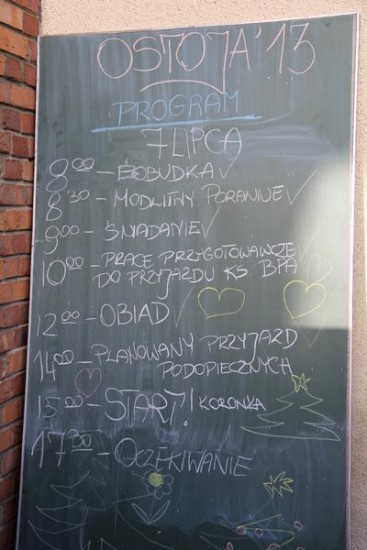 OSTOJA'13
PROGRAM
7 LIPCA
8⁰⁰ - POBUDKA
8³⁰ - MODLITWY PORANNE
9⁰⁰ - ŚNIADANIE
10⁰⁰ - PRACE PRZYGOTOWAWCZE
DO PRZYJAZDU KS. BPA
12⁰⁰ - OBIAD
14⁰⁰ - PLANOWANY PRZYJAZD
PODOPIECZNYCH
15⁰⁰ - START! / KORONKA
17³⁰ - OCZEKIWANIE